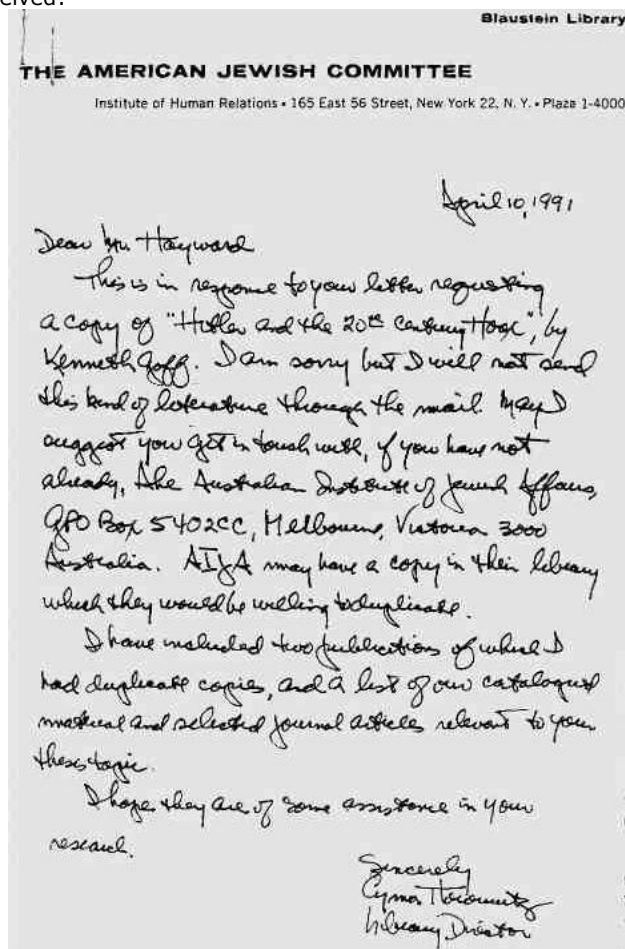 ceived?
Blaustein Library
THE AMERICAN JEWISH COMMITTEE
Institute of Human Relations • 165 East 56 Street, New York 22, N. Y. • Plaza 1-4000
April 10, 1991
Dear Mr. Hayward
This is in response to your letter requesting
a copy of "Hitler and the 20th Century Hoax", by
Kenneth Goff. I am sorry but I will not send
this kind of literature through the mail. May I
suggest you get in touch with, if you have not
already, the Australian Institute of Jewish Affairs,
GPO Box 5402CC, Melbourne, Victoria 3000
Australia. AIJA may have a copy in their library
which they would be willing to duplicate.
I have included two publications of which I
had duplicate copies, and a list of our catalogued
material and selected journal articles relevant to your
thesis topic.
I hope they are of some assistance in your
research.
Sincerely
Cyma Horowitz
Library Director